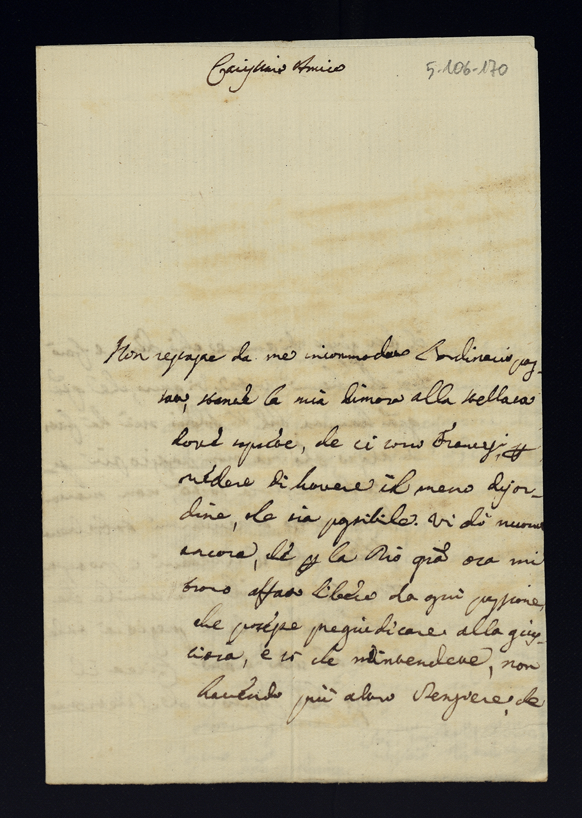 Carissimo Amico
5-106-170
Non restate da me incommodato l'ordinario pas-
sato, stante la mia dimora alla
dove sapete, che ci sono Francesi, per
vedere di havere il meno disor-
dine, che sia possibile. Vi dò nuova
ancora, che per la Dio grã ora mi
trovo affatto libero da ogni passione,
che potesse pregiudicare alla
e sò che m'intendete, non
havendo più altro Pensiere, che